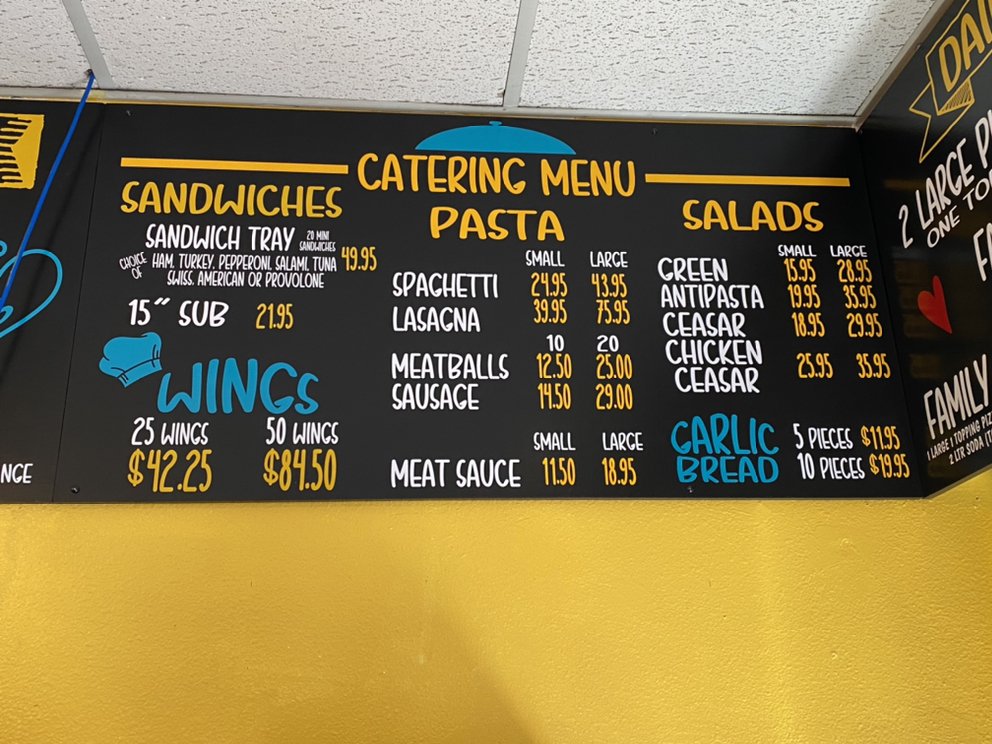 CATERING MENU
SANDWICHES
SANDWICH TRAY 20 MINI SANDWICHES
CHOICE OF HAM, TURKEY, PEPPERONI, SALAMI, TUNA 49.95
SWISS, AMERICAN OR PROVOLONE
15" SUB 21.95
WINGS
25 WINGS 50 WINGS
$42.25 $84.50
PASTA
SMALL LARGE
SPAGHETTI 24.95 43.95
LASAGNA 39.95 75.95
10 20
MEATBALLS 12.50 25.00
SAUSAGE 14.50 29.00
SMALL LARGE
MEAT SAUCE 11.50 18.95
SALADS
SMALL LARGE
GREEN 15.95 28.95
ANTIPASTA 19.95 35.95
CEASAR 18.95 29.95
CHICKEN
CEASAR 25.95 35.95
GARLIC
BREAD
5 PIECES $11.95
10 PIECES $19.95
2 LARGE
ONE
FAMILY
1 LARGE 1 TOPPING
2 LTR SODA